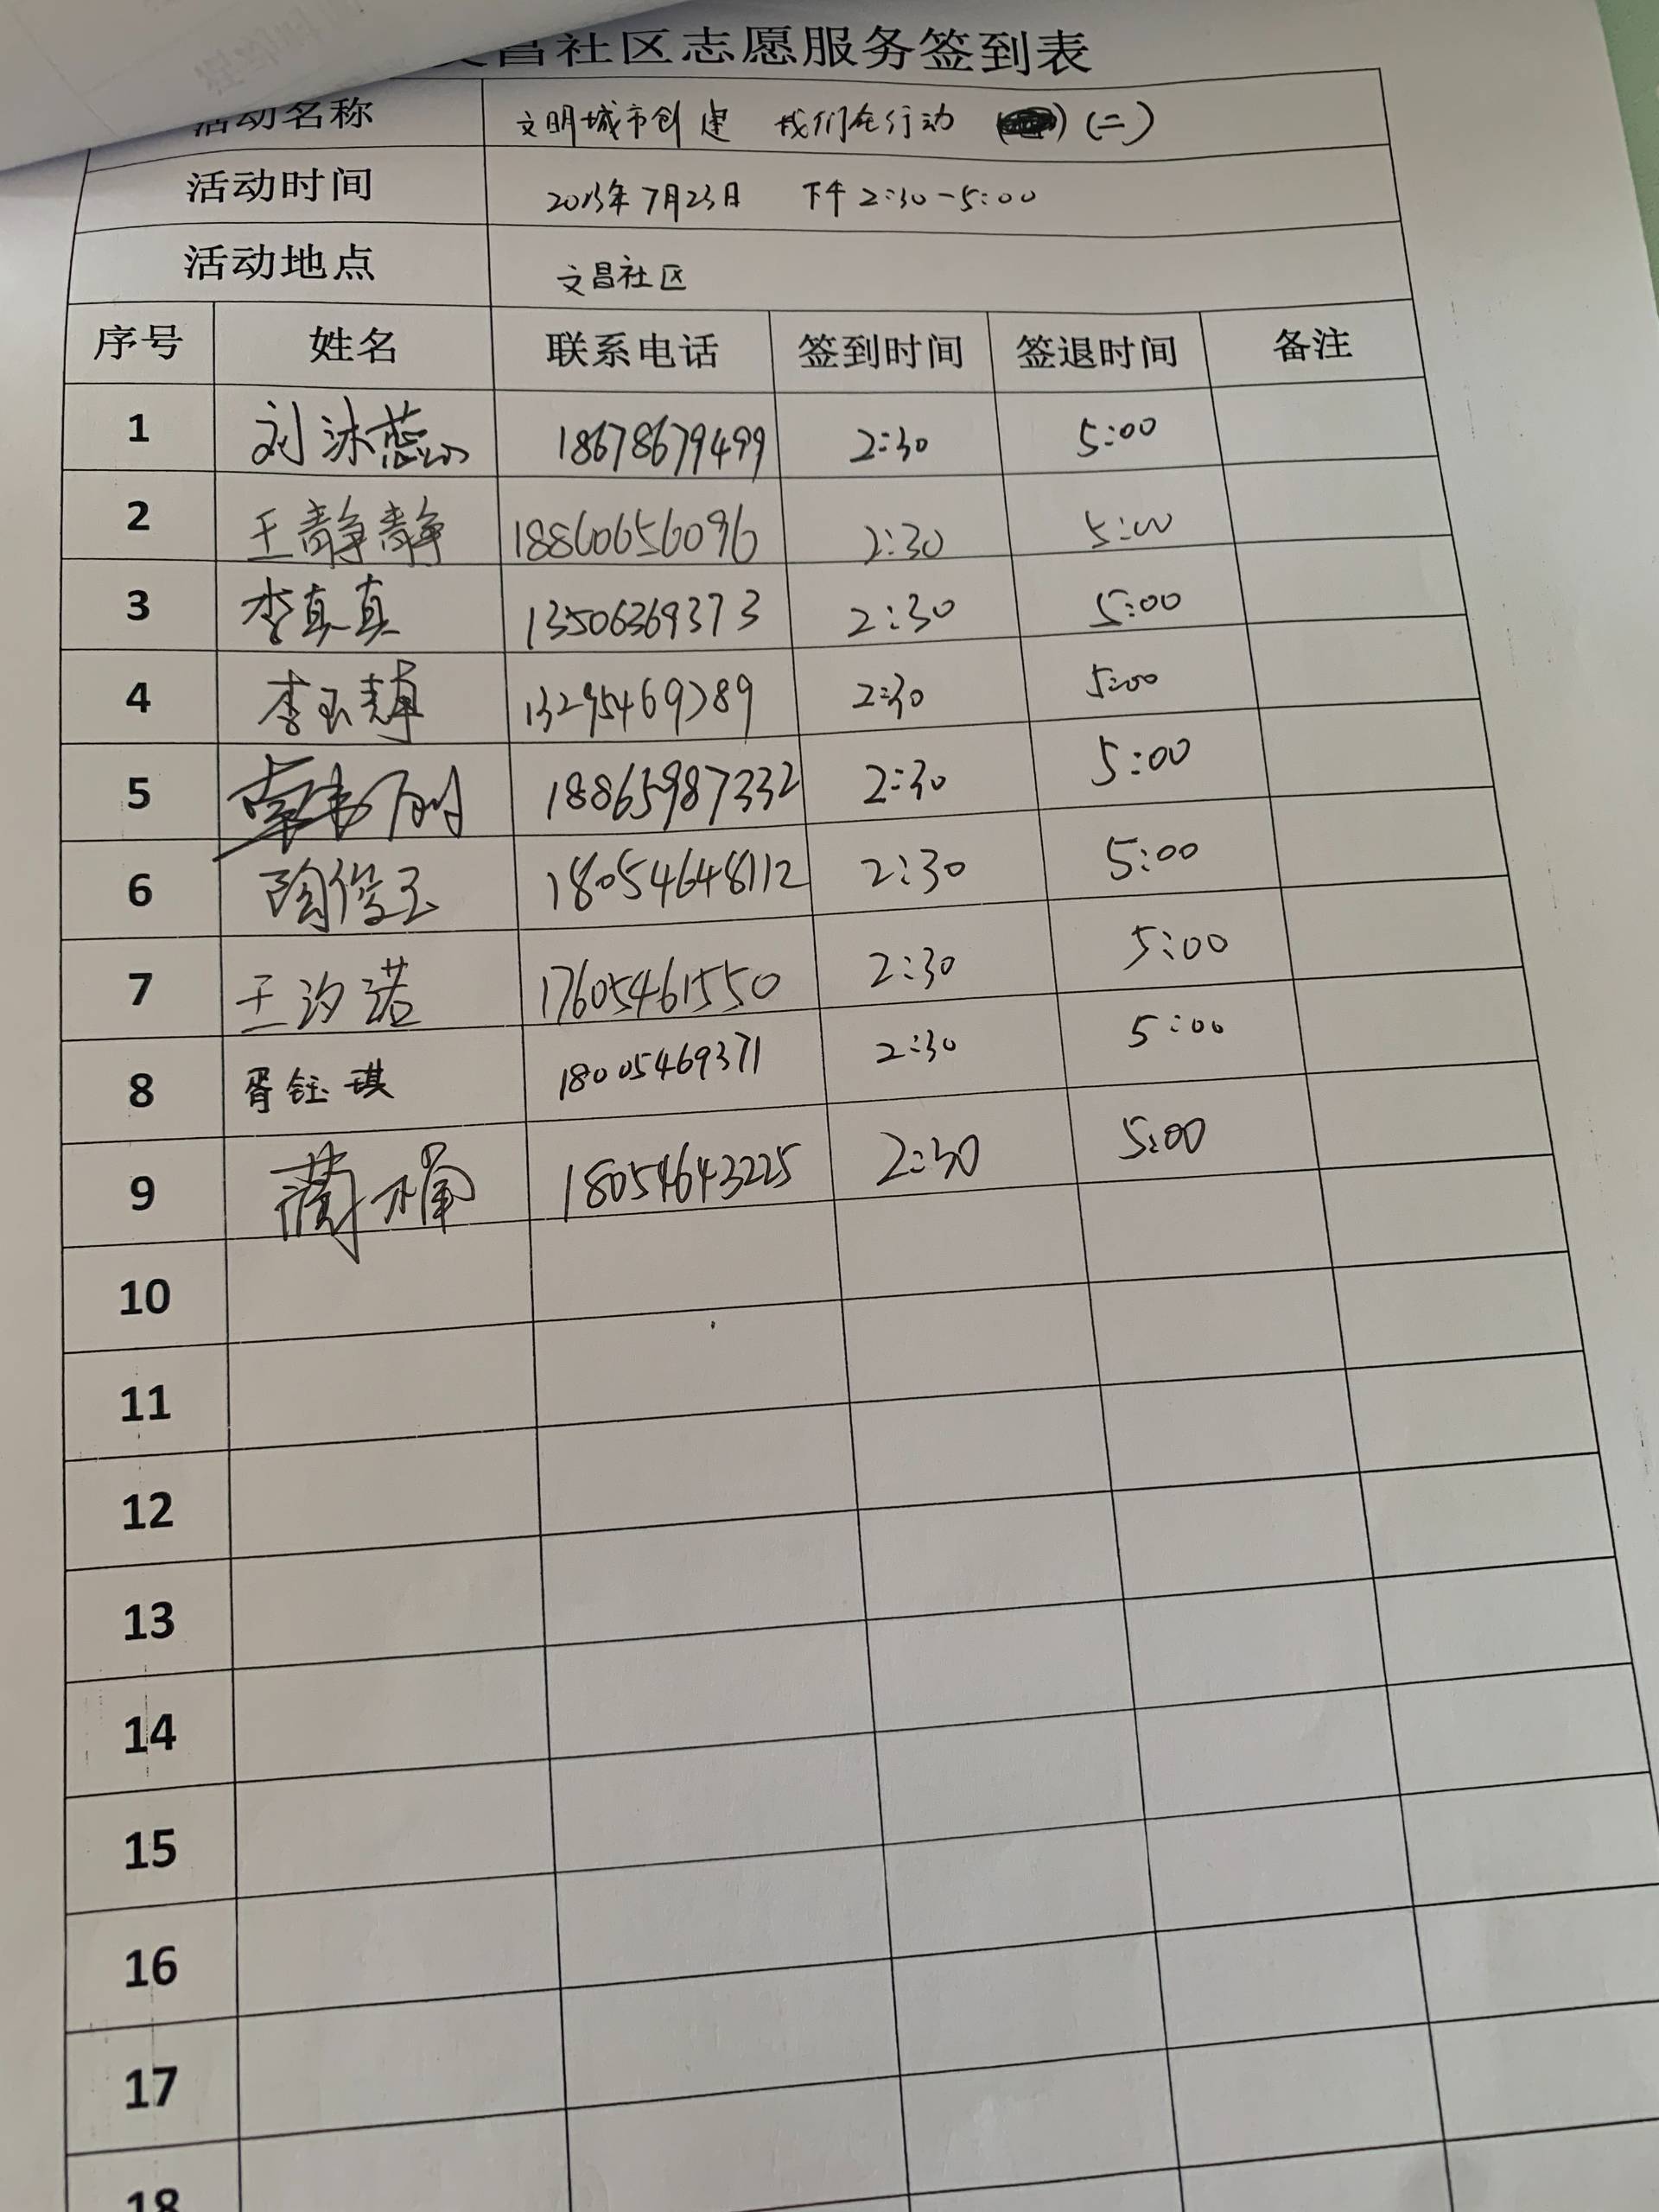 昌社区志愿服务签到表
活动名称 文明城市创建 我们在行动 (二)
活动时间 2023年7月23日 下午2:30-5:00
活动地点 文昌社区
序号 姓名 联系电话 签到时间 签退时间 备注
1 刘沐蕊 18678679499 2:30 5:00
2 王静静 18860656096 2:30 5:00
3 李真真 13506369373 2:30 5:00
4 李玉 13295469789 2:30 5:00
5 18865987332 2:30 5:00
6 陶俊玉 18054648112 2:30 5:00
7 王汐诺 17605461550 2:30 5:00
8 胥钰琪 18005469371 2:30 5:00
9 蔺楠 18054643225 2:30 5:00
10
11
12
13
14
15
16
17
18